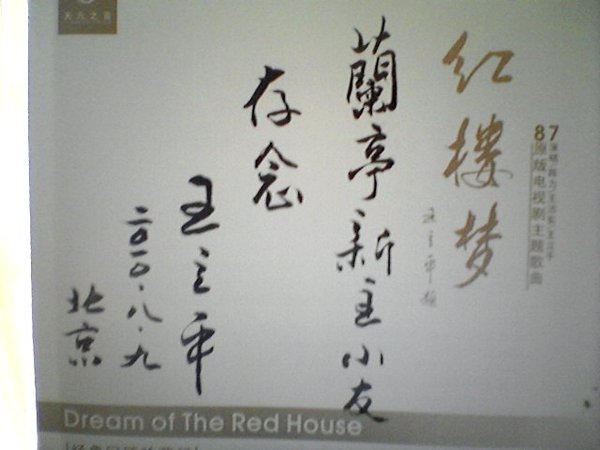 87
原版电视剧主题歌曲
红楼梦
王立平题
蘭亭新主小友
存念
王立平
二〇一〇.八.九
北京
Dream of The Red House